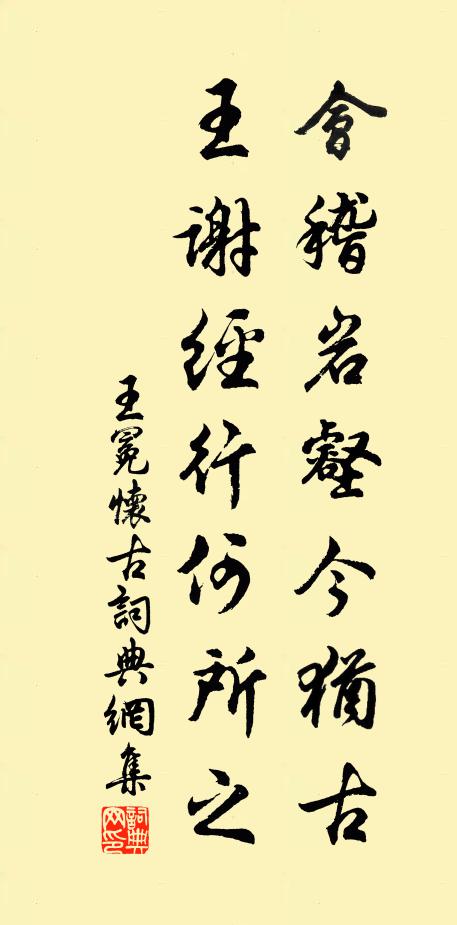 會稽岩壑今猶古
王謝經行何所之
王冕懷古詞典網集
詞典网印